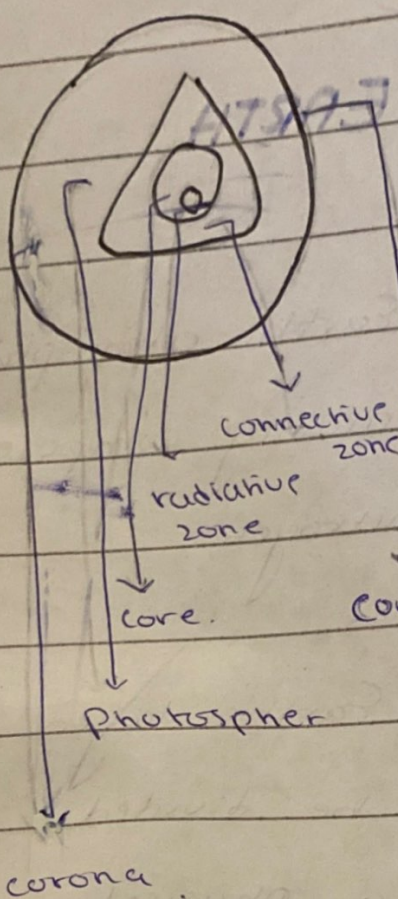 connective
zone
radiative
zone
core.
Co
photospher
corona